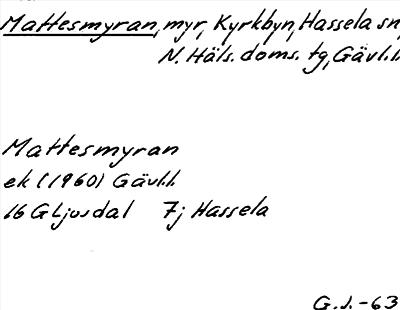 Mattesmyran, myr, Kyrkbyn, Hassela sn,
N. Häls. doms. tg, Gävl.l.
Mattesmyran
ek (1960) Gävl.l.
16 G Ljusdal 7j Hassela
G.J.-63